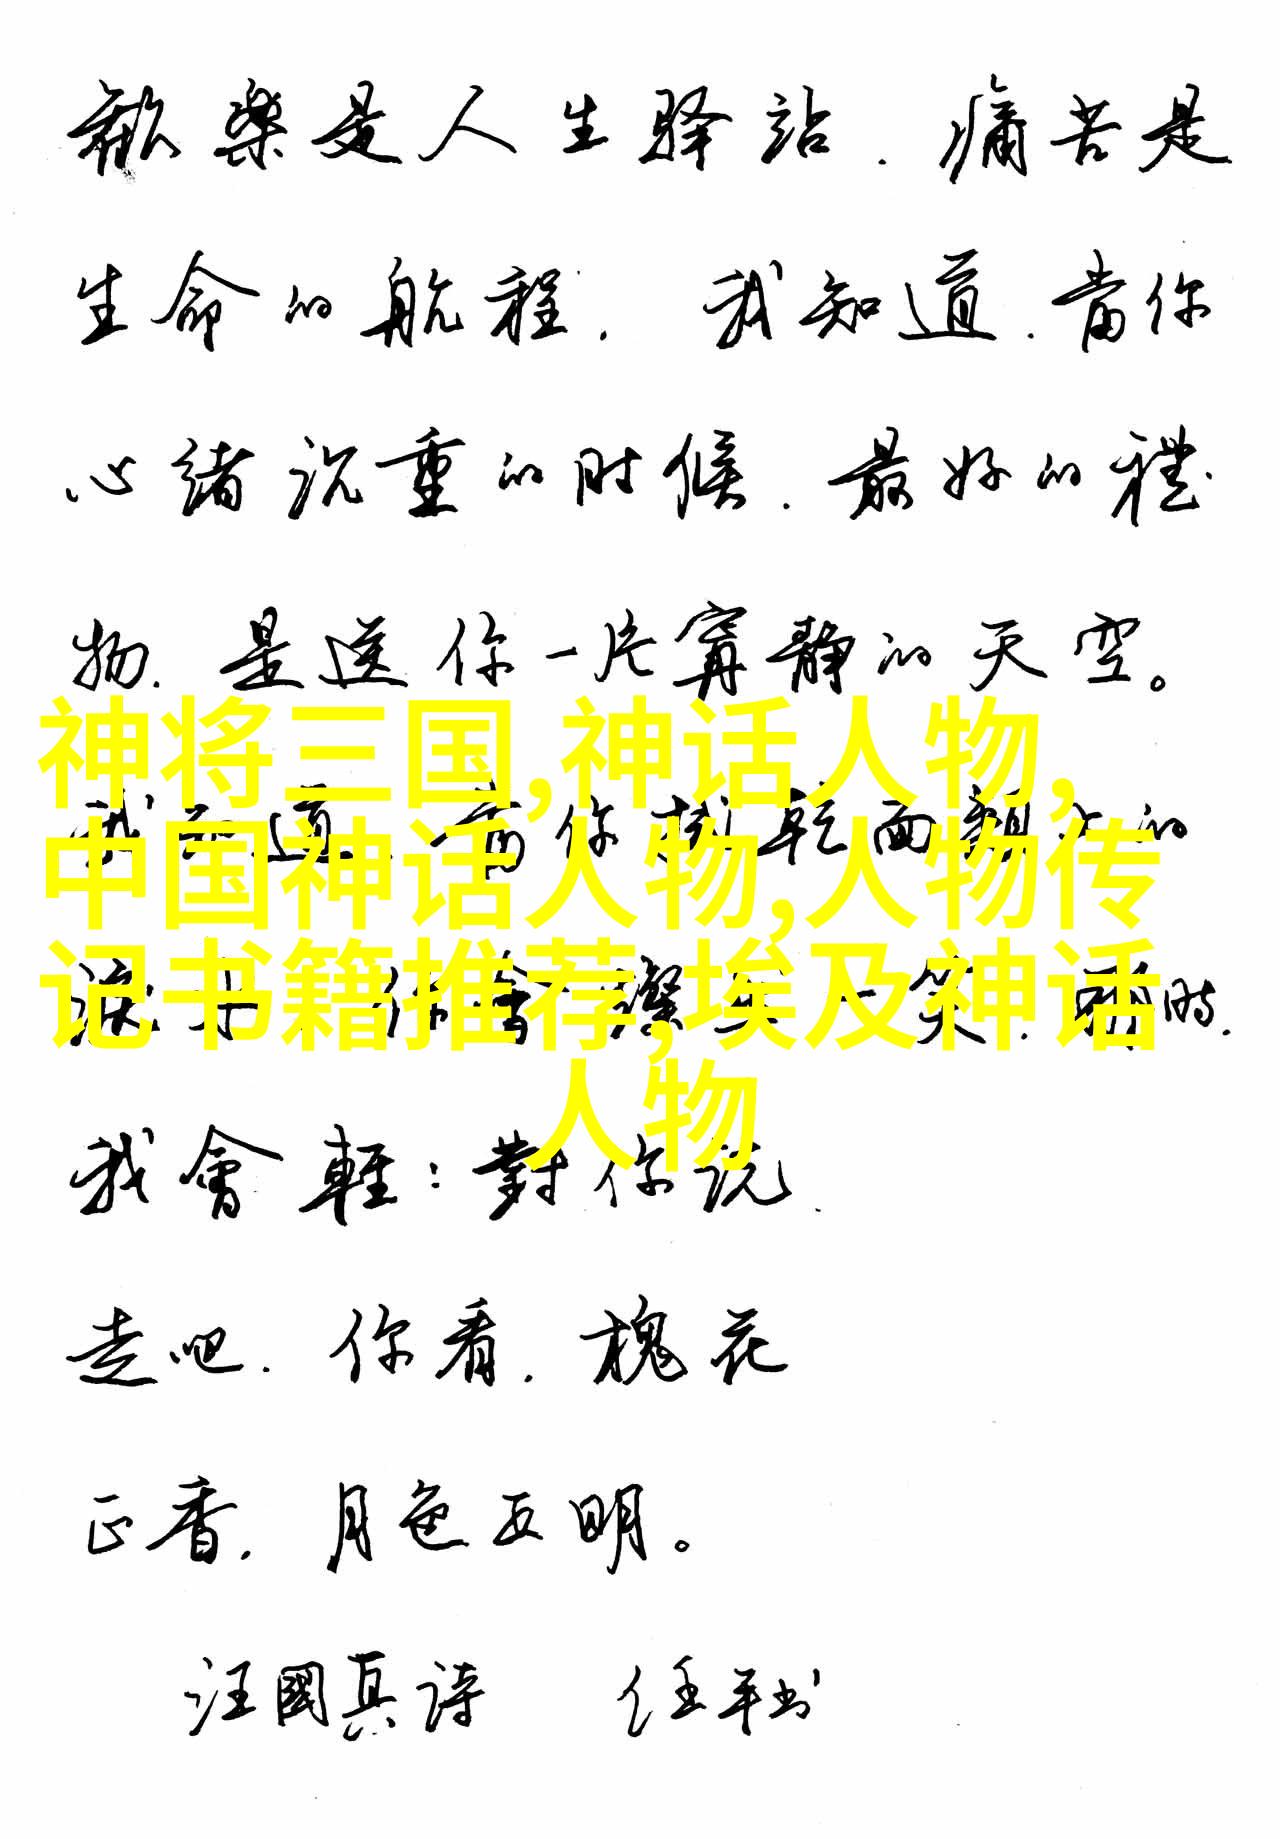 歡樂是人生驿站.痛苦是
生命的航程.我知道.當你
心緒沉重的时候.最好的禮
物.是送你一片寧静的天空。
神将三国,神话人物,
我知道 當你 乾面 的
中国神话人物,人物传
记书籍推荐,埃及神话
你會 一笑.那时.
人物
我會輕:對你说.
走吧.你看.槐花
正香.月色正明。
汪國真詩 任平书